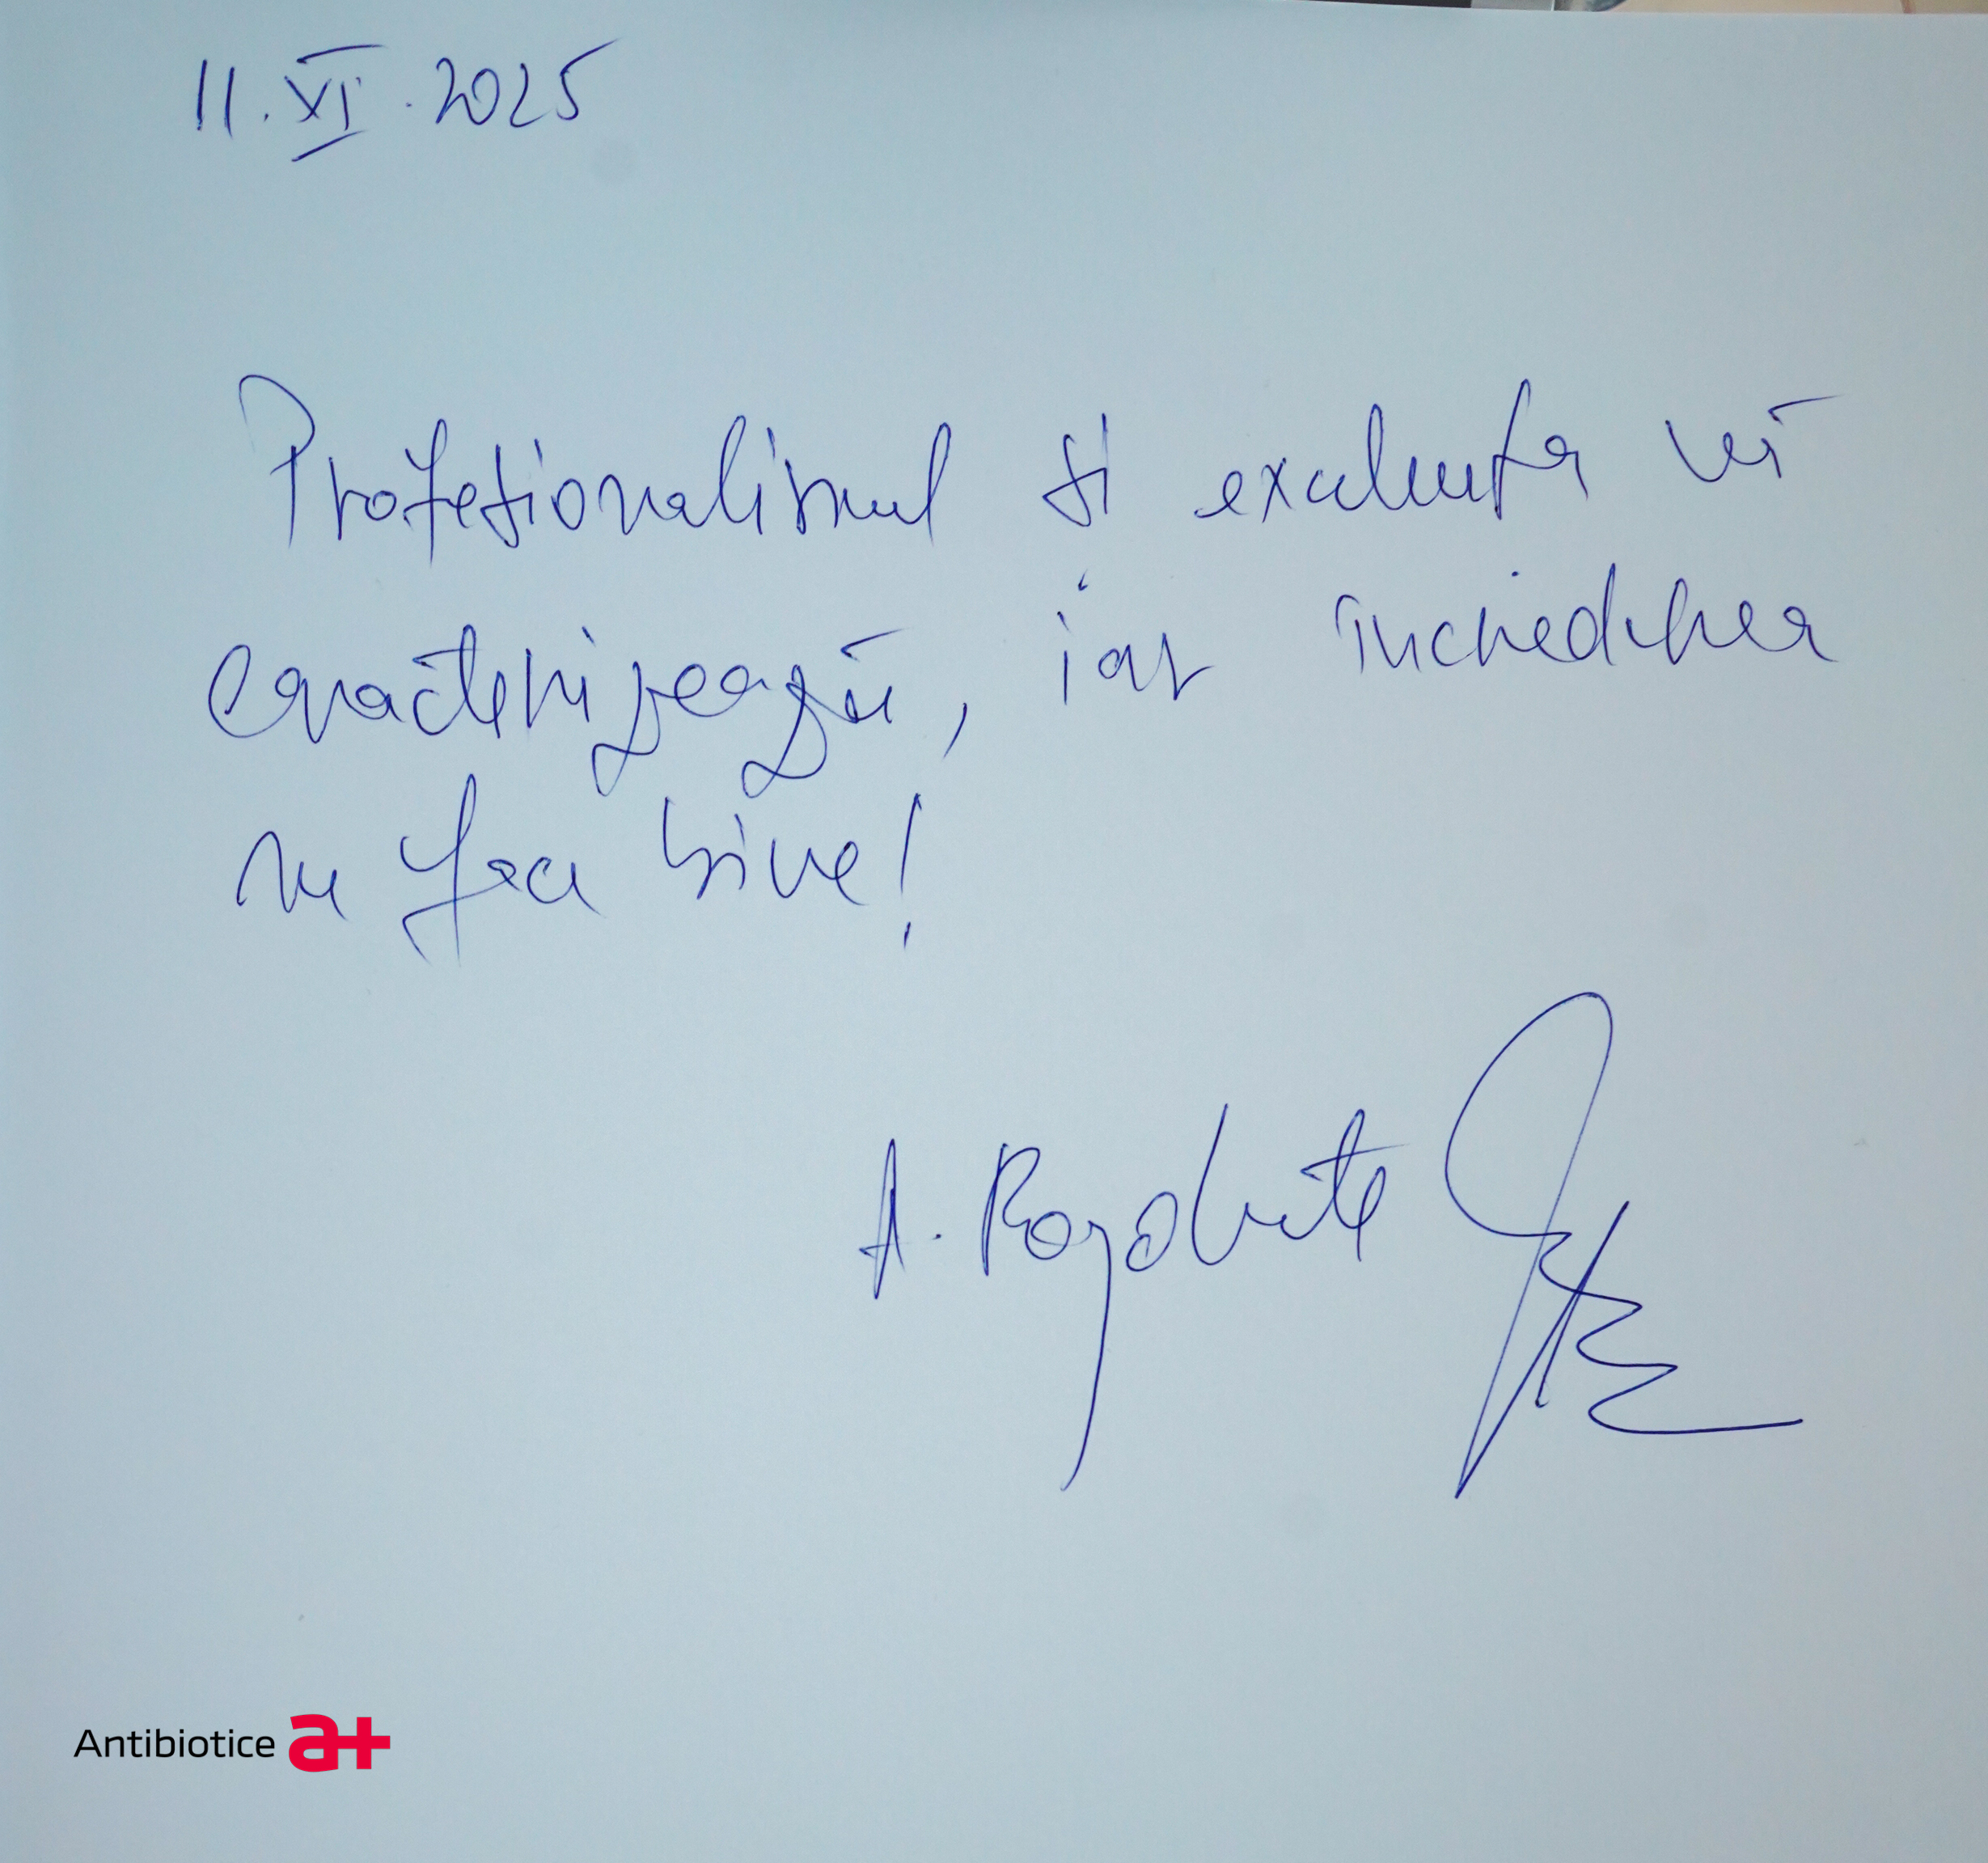 11.XI.2025
Profesionalismul și excelența vă
caracterizează, iar încrederea
ne face bine!
A. Rogobete
Antibiotice a+